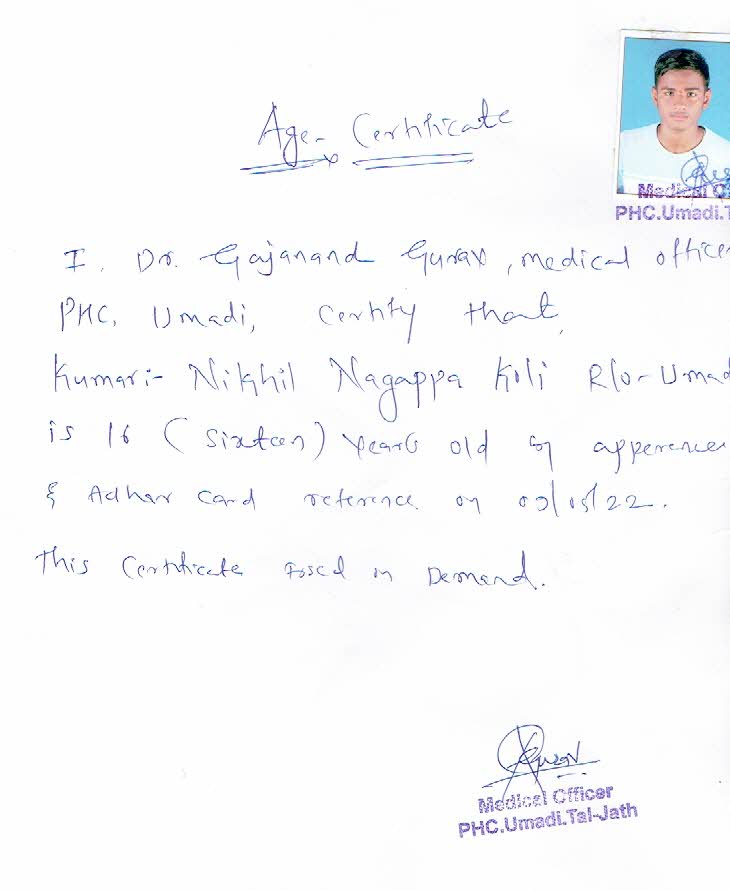 Age- Certificate
Medical O
PHC.Umadi.T
I, Dr. Gajanand Gurav, medical officer
PHC, Umadi, Certify that,
Kumari:- Nikhil Nagappa Koli R/o- Umad
is 16 (Sixteen) years old by apperence
& Adhar Card reference on /05/22.
This Certificate Issed on Demand.
Gurav
Medical Officer
PHC.Umadi.Tal-Jath